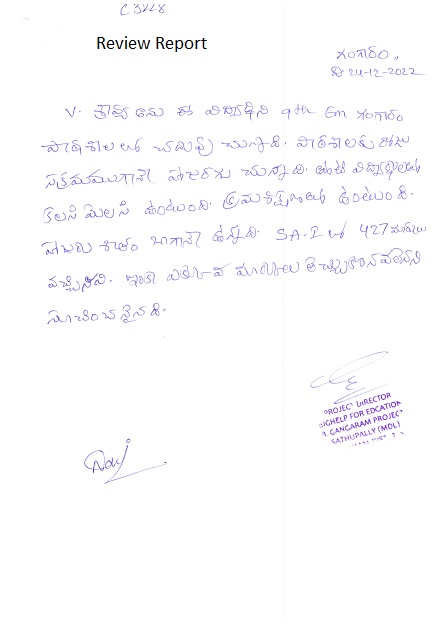 C 3728
Review Report
గంగారం,
ది 24-12-2022
V. శ్రావ్య అను ఈ విద్యార్థిని 9th Em గంగారం
పాఠశాలలో చదువు చున్నాది. పాఠశాలకు రోజు
సక్రమముగానే హాజరగు చున్నాది. తోటి విద్యార్థులతో
కలసి మెలసి ఉంటుంది. క్రమశిక్షణతో ఉంటుంది.
హాజరు శాతం బాగానే ఉన్నది. SA-I లో 427 మార్కులు
వచ్చినవి. ఇంకా ఎక్కువ మార్కులు తెచ్చుకొనవలెనని
సూచించనైనది.
PROJECT DIRECTOR
HIGHELP FOR EDCATION
GANGARAM PROJECT
SATHUPALLY (MDL)